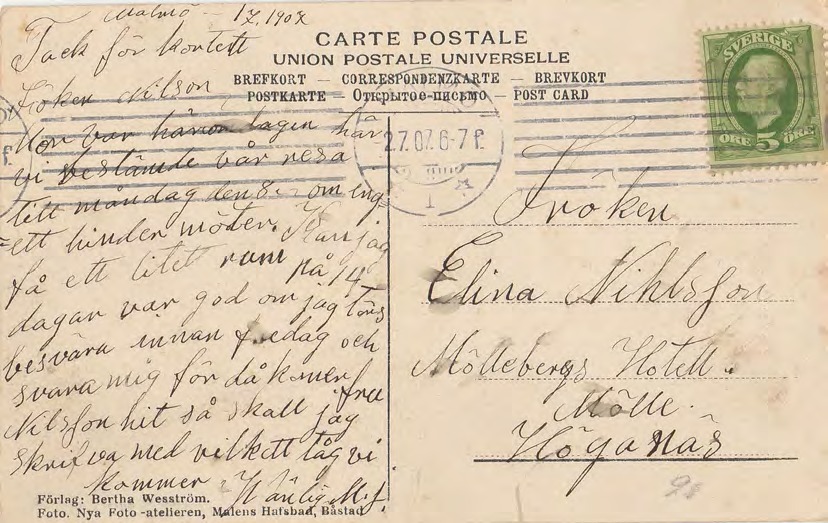 Malmö – 1/7. 1907
Tack för kortett
Fröken Nilson
Hon var häron dagen här
vi bestämde vår resa
till måndag den 8. om eng
ett hinder möter. Kan jag
få ett litet rum på 14
dagar var god om jag törs
besvära innan fredag och
svara mig för då komer fru
Nilsson hit så skall jag
skrifva med vilkett tåg vi
kommer Vänlig
CARTE POSTALE
UNION POSTALE UNIVERSELLE
BREFKORT — CORRESPONDENZKARTE — BREVKORT
POSTKARTE — Открытое-письмо — POST CARD
2.7.07.6-7 f.
1
SVERIGE
ÖRE 5 ÖRE
Fröken
Elina Nihlsson
Möllebergs Hotell.
Mölle.
Höganäs
98
Förlag: Bertha Wesström.
Foto. Nya Foto-atelieren, Malens Hafsbad, Båstad